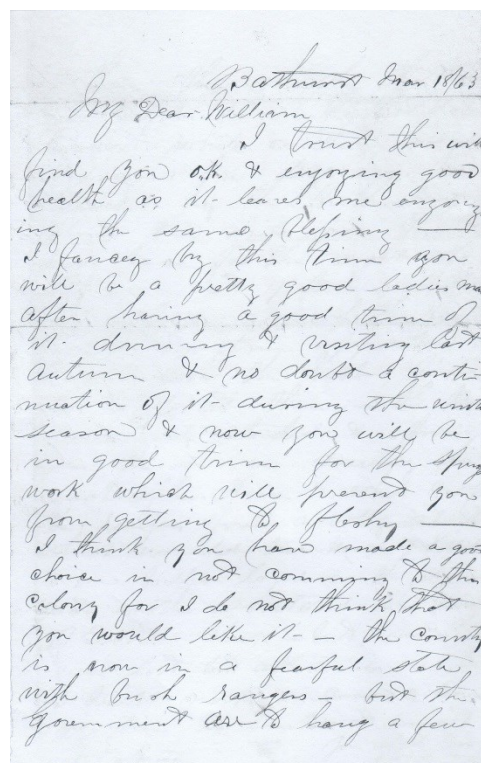 Bathurst Mar 18/63
My Dear William
I trust this will
find you o.k. & enjoying good
health as it leaves me enjoy
ing the same blessing —
I fancey by this time you
will be a pretty good ladies ma
after having a good time of
it driving & visiting last
Autumn & no doubt a conti-
nuation of it during the wint
season & now you will be
in good trim for the spring
work which will prevent you
from getting to fleshy —
I think you have made a good
choice in not comming to this
Colony for I do not think that
you would like it — the county
is now in a fearful state
with bush rangers — but the
Government are to hang a few